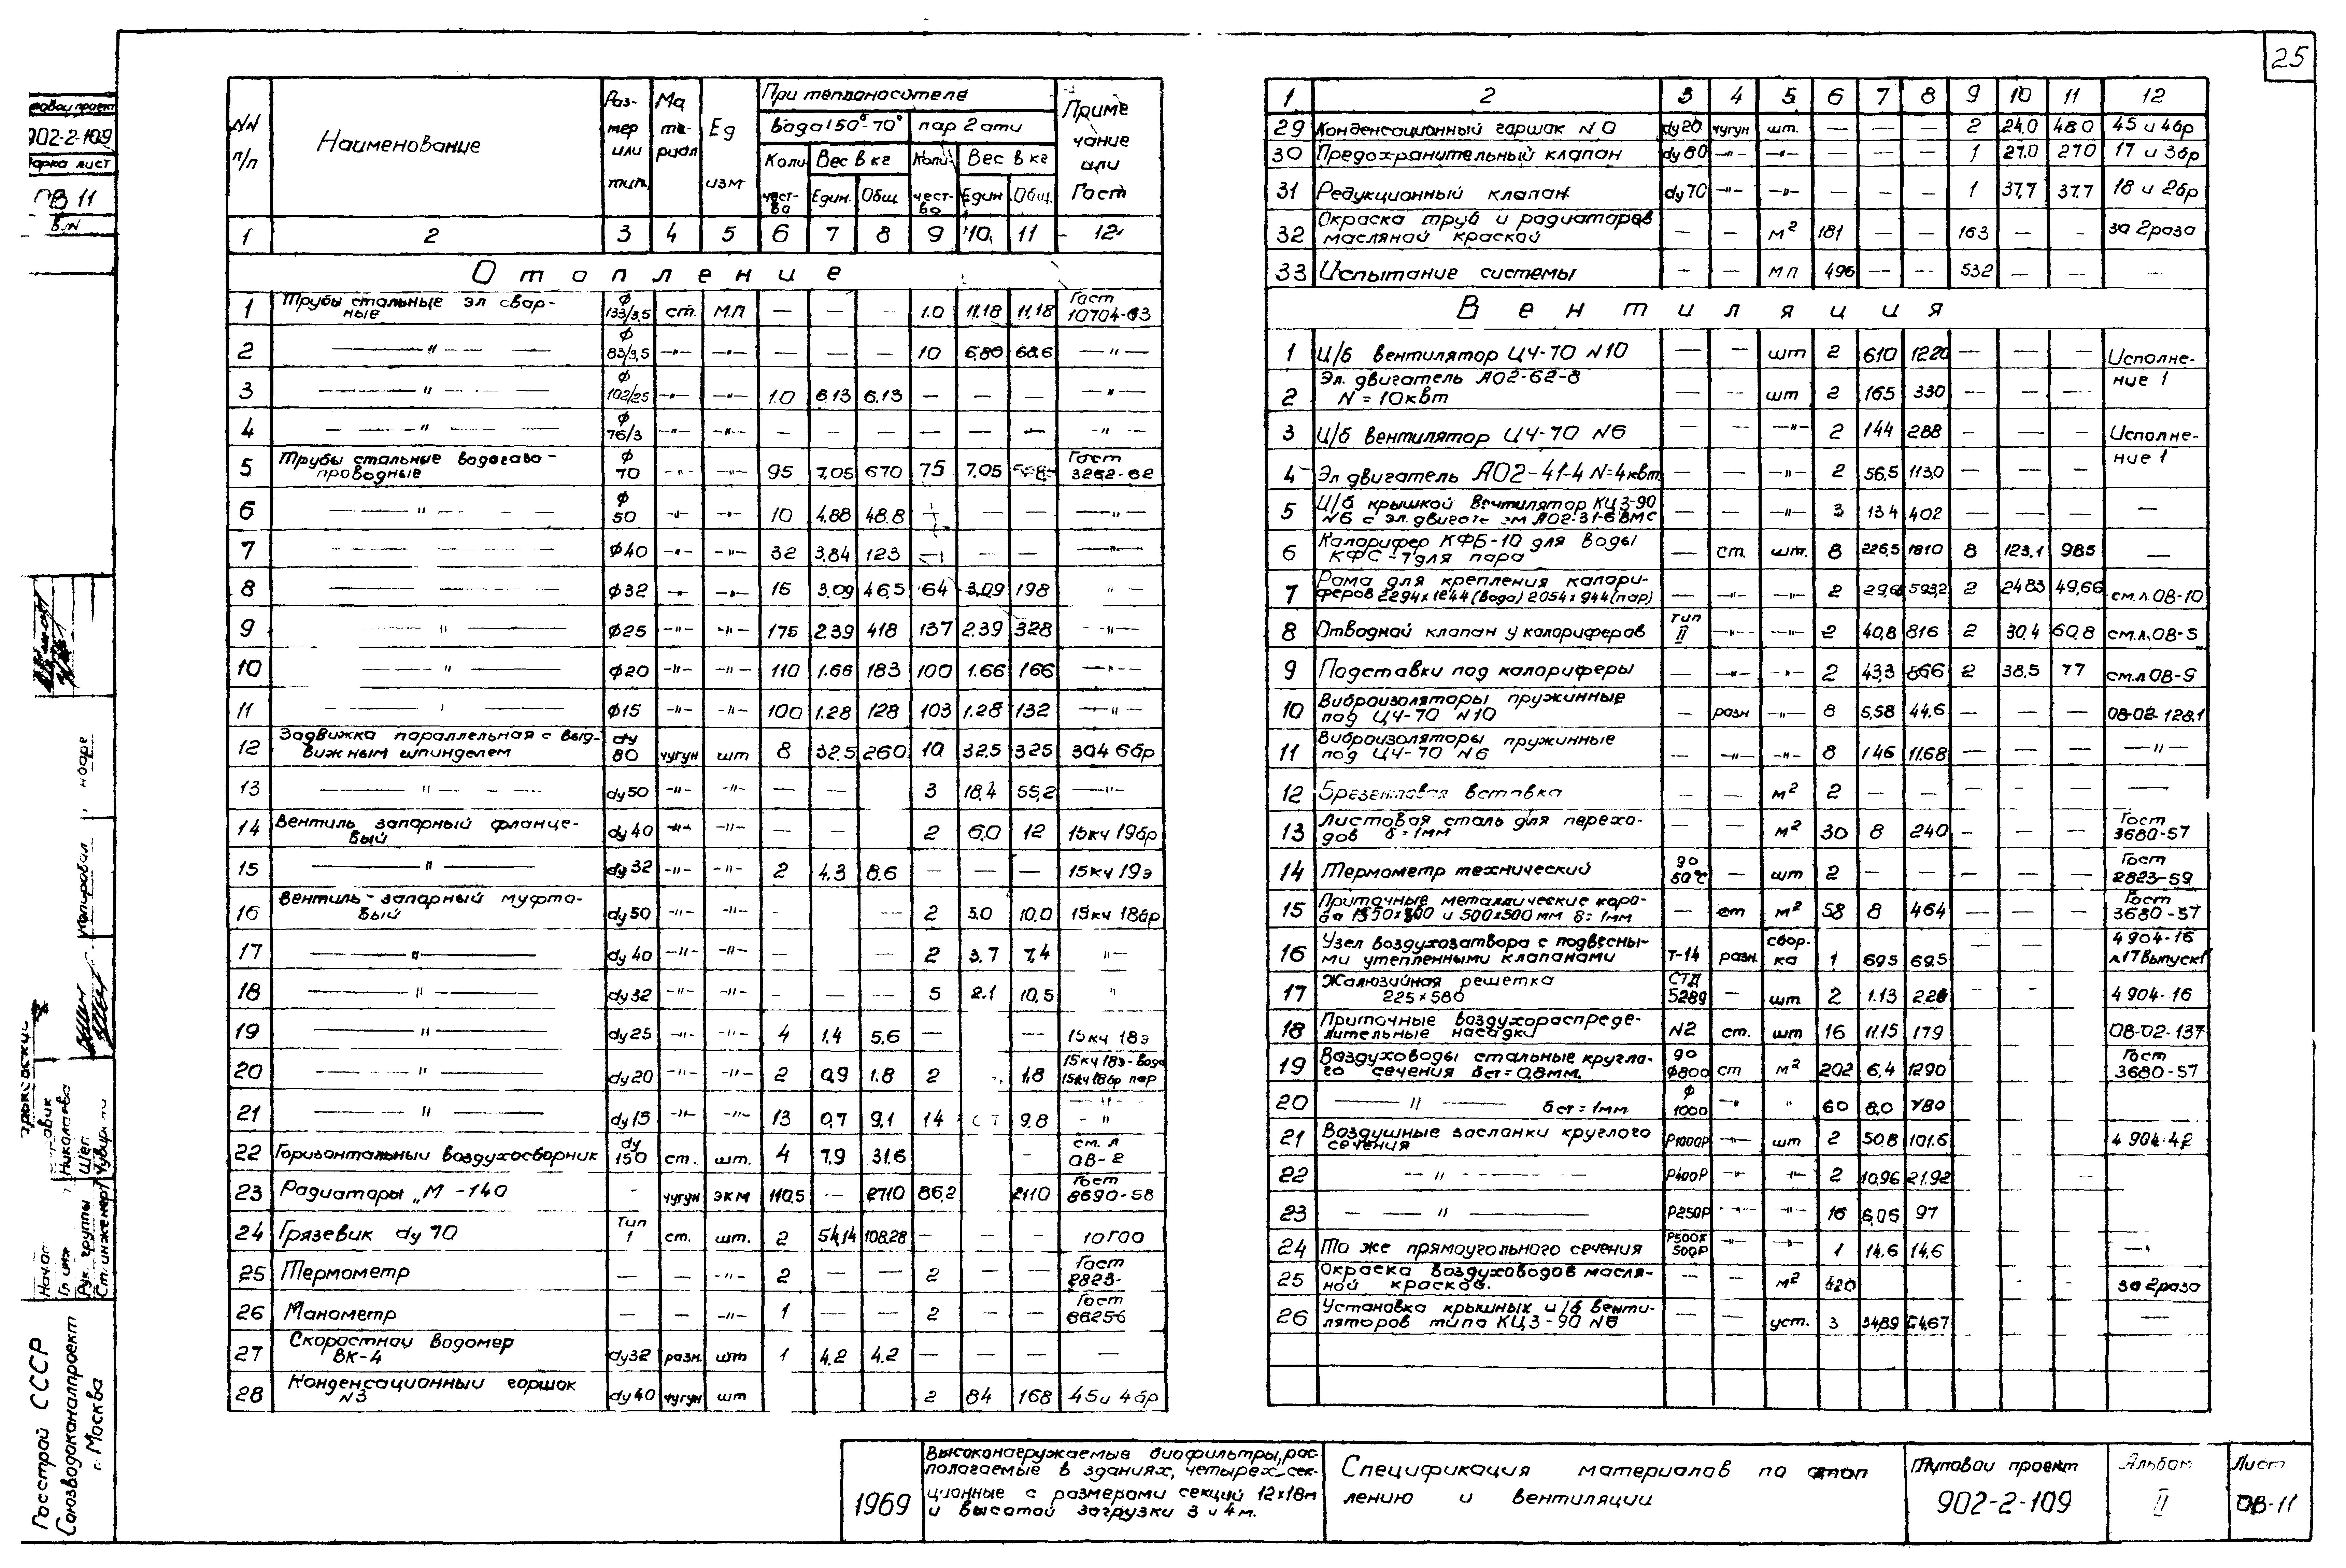 25
902-2-109
ОВ 11
NN п/п | Наименование | Размер или тип. | Материал | Ед изм | При теплоносителе | Примечание или Гост
вода 150°-70° | пар 2 ати
Количество | Вес в кг | Количество | Вес в кг
Един. | Общ | Един | Общ.
1 | 2 | 3 | 4 | 5 | 6 | 7 | 8 | 9 | 10 | 11 | 12
Отопление
1 | Трубы стальные эл сварные | ф 133/3,5 | ст. | м.п | — | — | — | 1.0 | 11.18 | 11,18 | Гост 10704-63
2 | —"— | ф 83/3,5 | —"— | —"— | — | — | — | 10 | 6.86 | 68.6 | —"—
3 | —"— | ф 102/25 | —"— | —"— | 1.0 | 6.13 | 6.13 | — | — | — | —"—
4 | —"— | ф 76/3 | —"— | —"— | — | — | — | — | — | — | —"—
5 | Трубы стальные водогазопроводные | ф 70 | —"— | —"— | 95 | 7,05 | 670 | 75 | 7,05 | Гост 3262-62
6 | —"— | ф 50 | —"— | —"— | 10 | 4.88 | 48.8 | — | — | — | —"—
7 | — | ф40 | —"— | —"— | 32 | 3.84 | 123 | — | — | — | —"—
8 | — | ф32 | —"— | —"— | 15 | 3,09 | 46,5 | 64 | 3,09 | 198 | —"—
9 | —"— | ф25 | —"— | —"— | 175 | 2.39 | 418 | 137 | 2.39 | 328 | —"—
10 | —"— | ф20 | —"— | —"— | 110 | 1.66 | 183 | 100 | 1.66 | 166 | —"—
11 | —"— | ф15 | —"— | —"— | 100 | 1.28 | 128 | 103 | 1.28 | 132 | —"—
12 | Задвижка параллельная с выдвижным шпинделем | dy 80 | чугун | шт | 8 | 32.5 | 260 | 10 | 32.5 | 325 | 304 6бр
13 | —"— | dy50 | —"— | —"— | — | — | 3 | 18,4 | 55,2 | —"—
14 | Вентиль запорный фланцевый | dy40 | —"— | —"— | — | — | — | 2 | 6,0 | 12 | 15кч 19бр
15 | —"— | dy32 | —"— | —"— | 2 | 4.3 | 8.6 | — | — | — | 15кч 19э
16 | Вентиль запорный муфтовый | dy50 | —"— | —"— | — | 2 | 5.0 | 10,0 | 15кч 18бр
17 | —"— | dy40 | —"— | —"— | — | — | — | 2 | 3.7 | 7,4 | "—
18 | —"— | dy32 | —"— | —"— | — | — | — | 5 | 2.1 | 10,5 | "
19 | —"— | dy25 | —"— | —"— | 4 | 1,4 | 5,6 | — | — | 15кч 18э
20 | —"— | dy20 | —"— | —"— | 2 | 0,9 | 1.8 | 2 | 1,8 | 15кч 18э-вода 15кч 18бр пар
21 | —"— | dy15 | —"— | —"— | 13 | 0,7 | 9,1 | 14 | 9,8 | —"—
22 | Горизонтальный воздухосборник | dy 150 | ст. | шт. | 4 | 7.9 | 31.6 | - | см. л ОВ-2
23 | Радиаторы „М-140 | - | чугун | экм | 110,5 | — | 2710 | 86,2 | 2110 | Гост 8690-58
24 | Грязевик dy 70 | Тип 1 | ст. | шт. | 2 | 54,14 | 108.28 | — | — | — | 10Г00
25 | Термометр | — | — | —"— | 2 | — | — | 2 | — | — | Гост 2823-
26 | Манометр | — | — | —"— | 1 | — | — | 2 | — | — | Гост 86256
27 | Скоростной водомер ВК-4 | dy32 | разн. | шт | 1 | 4.2 | 4.2 | — | — | — | —
28 | Конденсационный горшок N3 | dy40 | чугун | шт | 2 | 84 | 168 | 45ч 4бр
1 | 2 | 3 | 4 | 5 | 6 | 7 | 8 | 9 | 10 | 11 | 12
29 | Конденсационный горшок N0 | dy20 | чугун | шт. | — | — | — | 2 | 24.0 | 480 | 45 ч 4бр
30 | Предохранительный клапан | dy80 | —"— | —"— | — | — | — | 1 | 27.0 | 270 | 17 ч 3бр
31 | Редукционный клапан | dy70 | —"— | —"— | — | — | — | 1 | 37,7 | 37.7 | 18 ч 2бр
32 | Окраска труб и радиаторов масляной краской | — | — | м² | 181 | — | — | 163 | — | — | за 2раза
33 | Испытание системы | — | — | мп | 496 | — | — | 532 | — | — | —
Вентиляция
1 | Ц/б вентилятор Ц4-70 N10 | — | — | шт | 2 | 610 | 1220 | — | — | — | Исполнение 1
2 | Эл. двигатель АО2-62-8 N=10квт | — | — | шт | 2 | 165 | 330 | — | — | —
3 | Ц/б вентилятор Ц4-70 N6 | — | — | —"— | 2 | 144 | 288 | — | — | — | Исполнение 1
4 | Эл двигатель АО2-41-4 N=4квт | — | — | —"— | 2 | 56,5 | 113,0 | — | — | —
5 | Ц/б крышной вентилятор КЦ3-90 N6 с эл. двигателем АО2-31-6ВМС | — | — | —"— | 3 | 134 | 402 | — | — | — | —
6 | Калорифер КФБ-10 для воды КФС-7 для пара | — | ст. | шт. | 8 | 226,5 | 1810 | 8 | 123,1 | 985 | —
7 | Рама для крепления калориферов 2294х1244(вода) 2054х944(пар) | — | —"— | —"— | 2 | 29,6 | 593,2 | 2 | 2483 | 49,66 | см.л.ОВ-10
8 | Отводной клапан у калориферов | тип II | —"— | —"— | 2 | 40,8 | 816 | 2 | 30,4 | 60,8 | см.л.ОВ-5
9 | Подставки под калориферы | — | —"— | —"— | 2 | 43,3 | 866 | 2 | 38,5 | 77 | см.л ОВ-9
10 | Виброизоляторы пружинные под Ц4-70 N10 | — | разн | —"— | 8 | 5,58 | 44.6 | — | — | — | ОВ-02-128.1
11 | Виброизоляторы пружинные под Ц4-70 N6 | — | —"— | —"— | 8 | 1.46 | 11.68 | — | — | — | —"—
12 | Брезентовая вставка | — | — | м² | 2 | — | — | — | — | — | —
13 | Листовая сталь для переходов δ=1мм | — | — | м² | 30 | 8 | 240 | — | — | — | Гост 3680-57
14 | Термометр технический | 90 50°С | — | шт | 2 | — | — | — | — | — | Гост 2823-59
15 | Приточные металлические короба 1550х800 и 500х500мм δ=1мм | — | ст | м² | 58 | 8 | 464 | — | — | — | Гост 3680-57
16 | Узел воздухозатвора с подвесными утепленными клапанами | Т-14 | разн. | сборка | 1 | 695 | 69.5 | — | — | 4 904-16 л17 Выпуск1
17 | Жалюзийная решетка 225×580 | СТД 5289 | — | шт | 2 | 1.13 | 2.26 | - | - | 4 904-16
18 | Приточные воздухораспределительные насадки | N2 | ст. | шт | 16 | 11.15 | 179 | ОВ-02-137
19 | Воздуховоды стальные круглого сечения δст=0,8мм. | до ф800 | ст | м² | 202 | 6,4 | 1290 | Гост 3680-57
20 | —"— δст=1мм | ф 1000 | —"— | " | 60 | 8,0 | 480
21 | Воздушные заслонки круглого сечения | Р1000Р | —"— | шт | 2 | 50,8 | 101.6 | 4 904-42
22 | —"— | Р400Р | —"— | —"— | 2 | 10,96 | 21.92 | —
23 | —"— | Р250Р | —"— | —"— | 16 | 6,06 | 97
24 | То же прямоугольного сечения | Р500х500Р | —"— | —"— | 1 | 14.6 | 14.6 | —"
25 | Окраска воздуховодов масляной краской. | — | — | м² | 420 | за 2раза
26 | Установка крышных ц/б вентиляторов типа КЦ3-90 N6 | — | — | уст. | 3 | 34,89 | —
Госстрой СССР
Союзводоканалпроект
г. Москва
Рук. группы
Ст. инженер
Николаева
Копировал
1969
Высоконагружаемые биофильтры, рас-
полагаемые в зданиях, четырех сек-
ционные с размерами секций 12х18м
и высотой загрузки 3 и 4 м.
Спецификация материалов по отоп
лению и вентиляции
Типовой проект
902-2-109
Альбом
II
Лист
ОВ-11